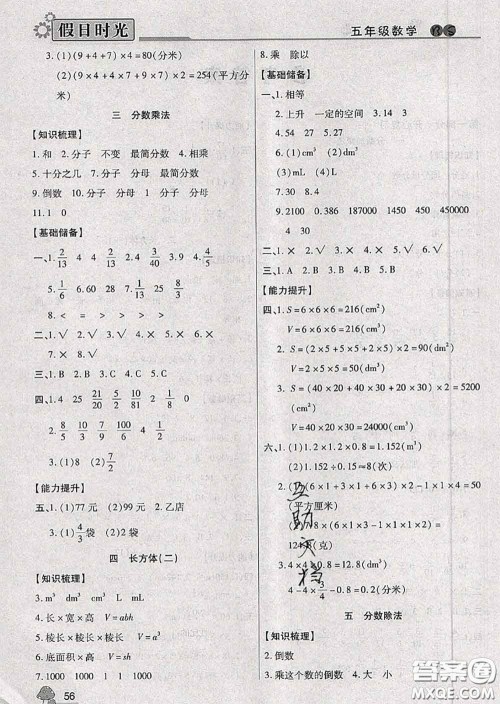 假日时光
五年级数学
3.(1)(9+4+7)×4=80(分米)
(2)(9×4+9×7+4×7)×2=254(平方分米)
三 分数乘法
【知识梳理】
1.和 2.分子 不变 最简分数 4.相乘
5.十分之几 6.分子 分母 最简分数
9.倒数 10.分子 分母 1 分子 分母
11.1 0
【基础储备】
一、1. 2/13 4/13 2. 4 3. 16.8 39.9 4. 4/5
5. 1/6 6.60 30 7.> > = <
8. 5/8 5/8
二、1.√ 2.× 3.√ 4.√ 5.√ 6.√
7.× 8.×
三、1.B 2.D 3.C
四、1. 4/25 24/21 5/20 10/81 2 1/8 0
2. 8/5 10/13 5/7 1/10
3.(1)8 (2) 2/3
【能力提升】
五、1.(1)77元 (2)99元 2.乙店
3.(1) 4/3 袋 (2)2袋
四 长方体(二)
【知识梳理】
3.m³ dm³ cm³ L mL
4.长×宽×高 V=abh
5.棱长×棱长×棱长 V=a³
6.底面积×高 V=sh
7.1000 1000 1 1000 1000
56
8.乘 除以
【基础储备】
一、1.相等
2.上升 一定的空间 3.14 3
4.54 27 5.27
6.(1)cm³ (2)dm³ (3)L (4)mL
7.30 8.4
9.2100 2.386 187000 1450 450 450000
10.4 30
二、1.× 2.× 3.× 4.× 5.× 6.√
三、1.A 2.B 3.B 4.C
【能力提升】
四、1.S=6×6×6=216(cm²)
V=6×6×6=216(cm³)
2.S=(2×5+5×5+2×5)×2=90(dm²)
V=2×5×5=50(dm³)
3.S=(40×20+40×30+20×30)×2=5200(cm²)
V=40×20×30=24000(cm³)
六、1.(1)1.2×1.2×0.8=1.152(m³)
(2)1.152÷0.15≈8(次)
(6×1+3×1+2×1+1×1)×4=50
(平方厘米)
(6×1×1+3×1×1+2×1×1)=
(克)
3.4×4×0.8=12.8(立方分米)
五 分数除法
【知识梳理】
2.倒数
3.乘这个数的倒数 4.大 小
互助文档
答案圈
MXQE.COM